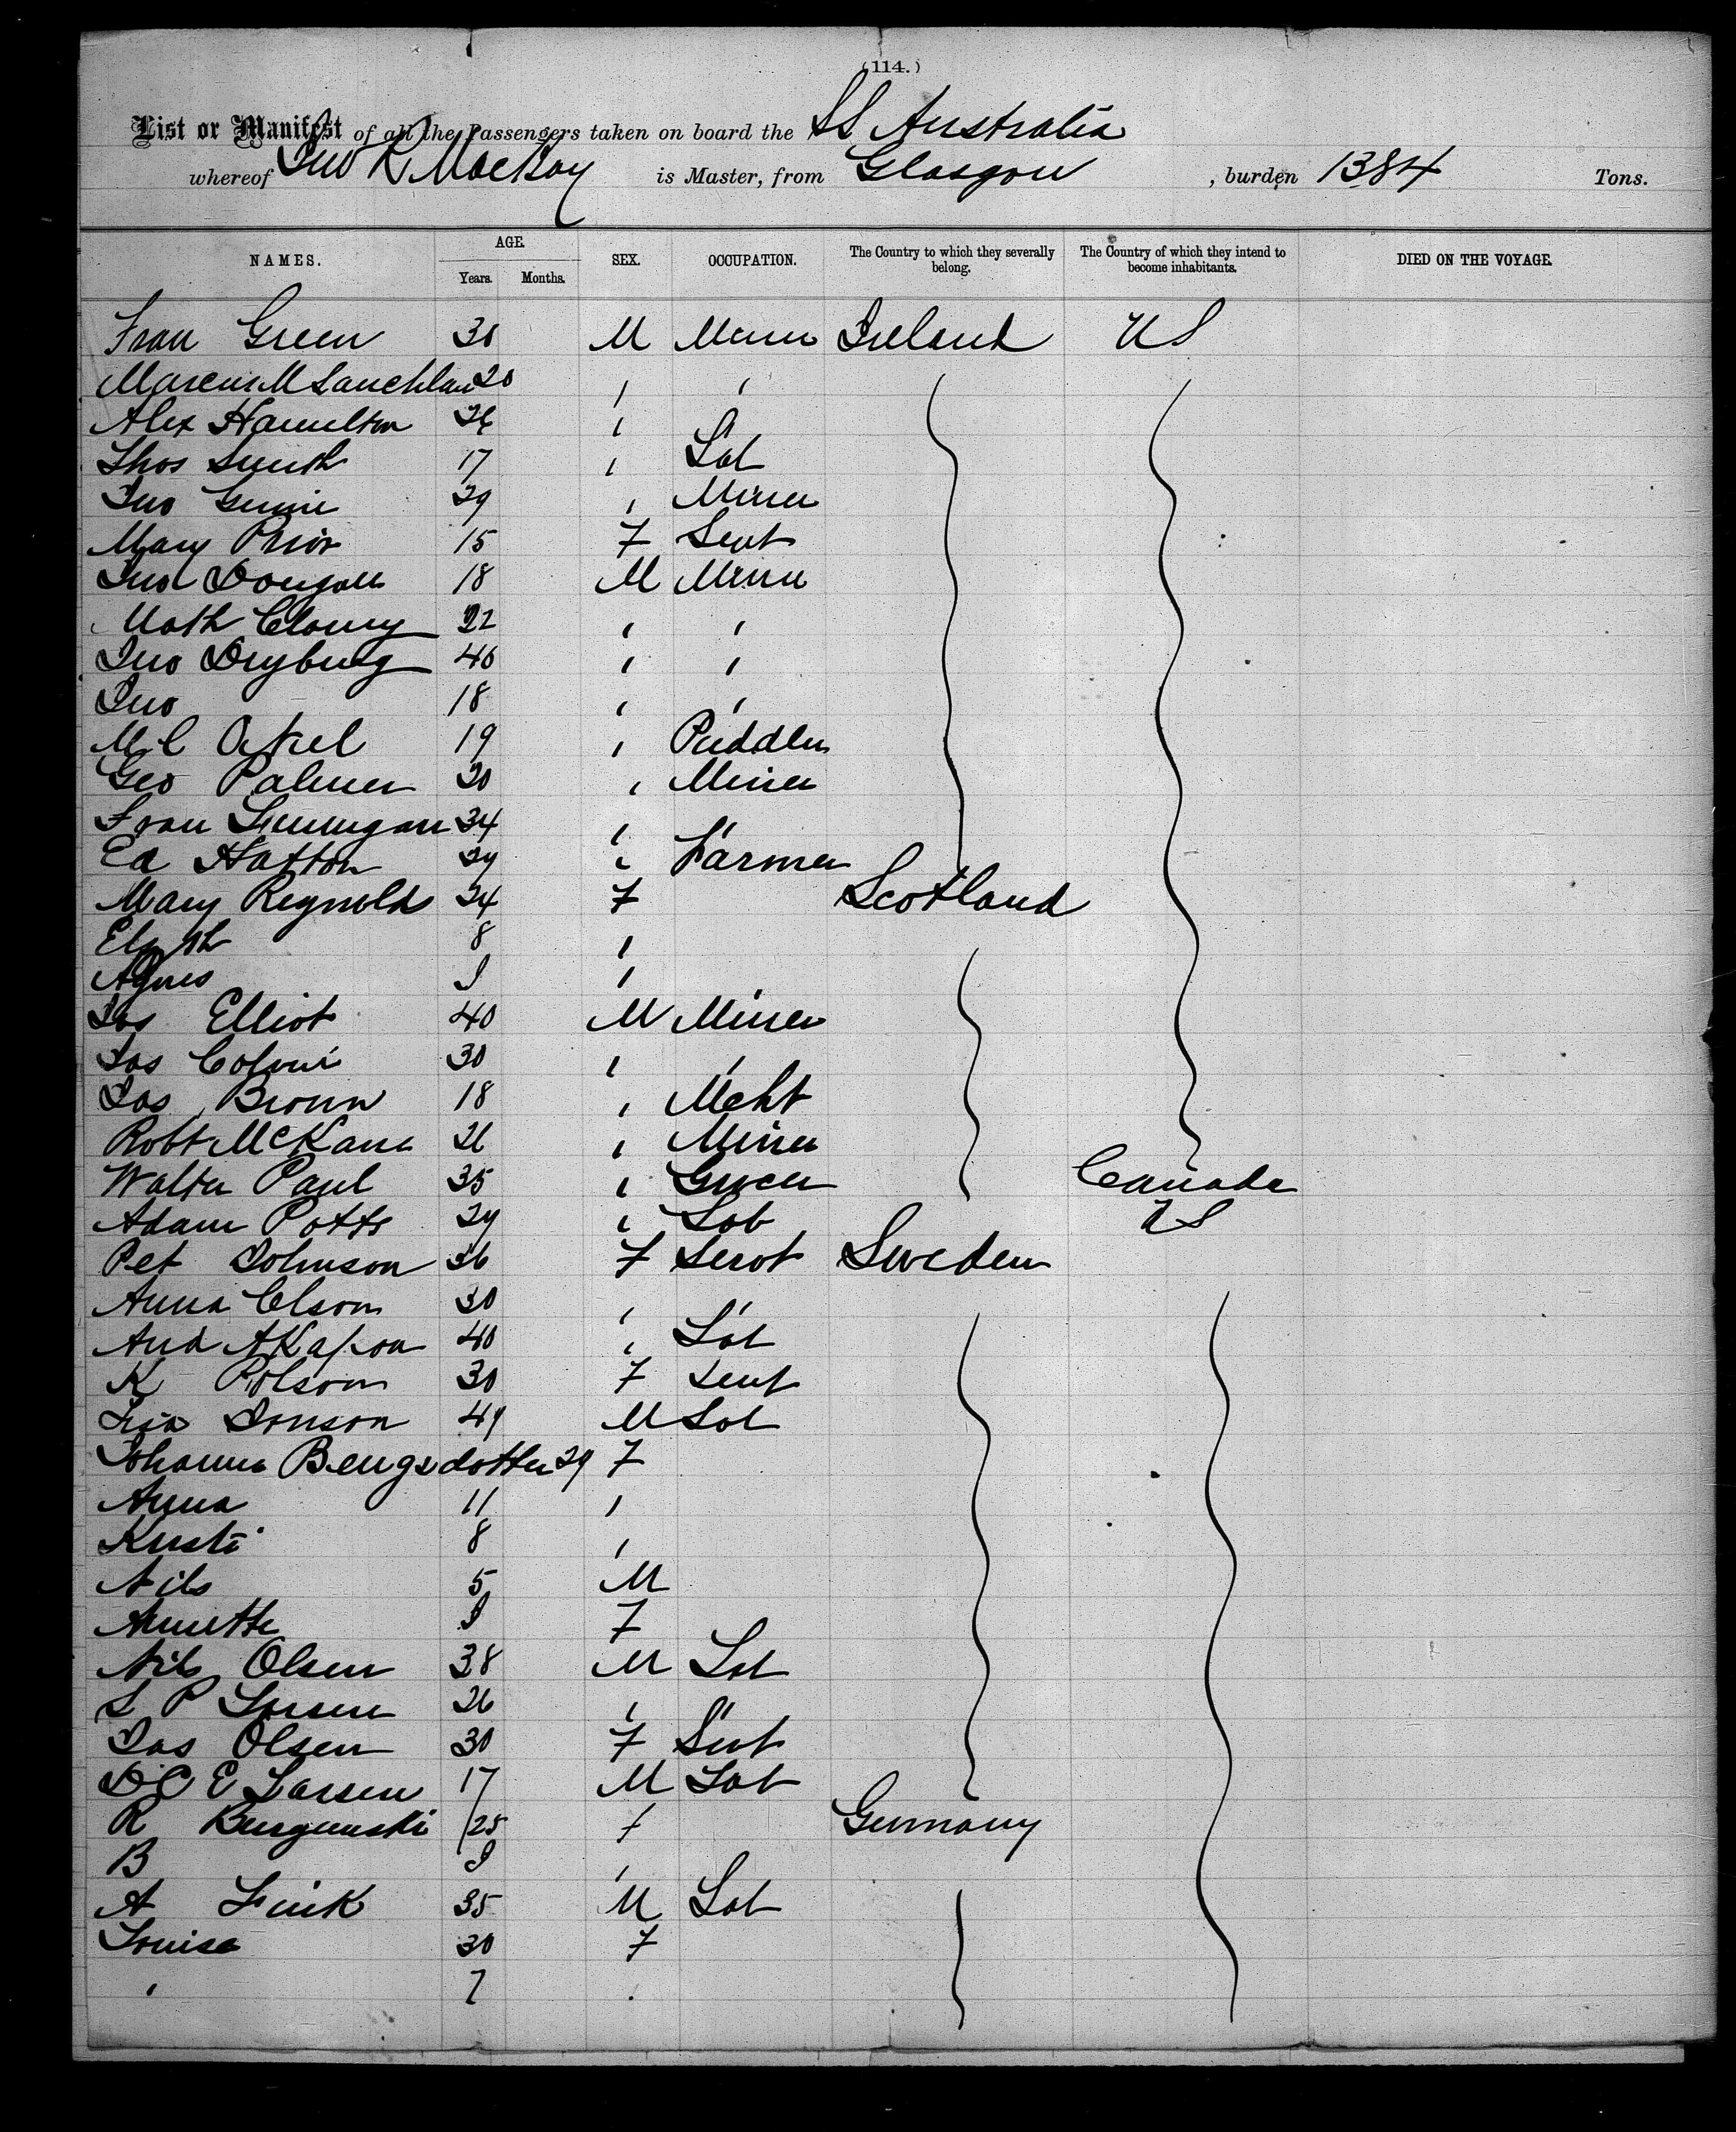 (114.)
List or Manifest of all the Passengers taken on board the SS Australia
whereof Jno R Mackay is Master, from Glasgow , burden 1384 Tons.
NAMES. AGE. Years. Months. SEX. OCCUPATION. The Country to which they severally belong. The Country of which they intend to become inhabitants. DIED ON THE VOYAGE.
Fran Green 30 M Miner Ireland US
Marcus McLauchlan 20 " "
Alex Hamilton 26 " "
Thos Smith 17 " Lab
Jno 29 " Miner
Mary Prior 15 F Servt
Jno Dougall 18 M Miner
Math Clowry 22 " "
Jno Dryburg 40 " "
Jno 18 " "
19 " Puddler
Geo Palmer 20 " Miner
Fran Finnigan 34 " "
Ed Hatton 29 " Farmer
Mary Reynolds 24 F Scotland
Elizth 8 "
Agnes "
Jas Elliot 40 M Miner
Jas 30 " "
Jas Brown 18 " Mcht
Robt McKane 26 " Miner
Walter Paul 35 " Grocer Canada
Adam Potts 29 " Lab US
Pet Johnson 36 F Servt Sweden
Anna Olson 30 " "
And 40 " Lab
K Polson 30 F Servt
Jonson 49 M Lab
Johanna Bengsdotter 29 F
Anna 11 "
Kersti 8 "
Nils 5 M
Annette F
Nils Olsen 38 M Lab
L P Larsen 26 " "
Jas Olsen 30 F Servt
E Larsen 17 M Lab
R 25 F Germany
B "
A Fink 35 M Lab
Louise 30 F
" 7 "